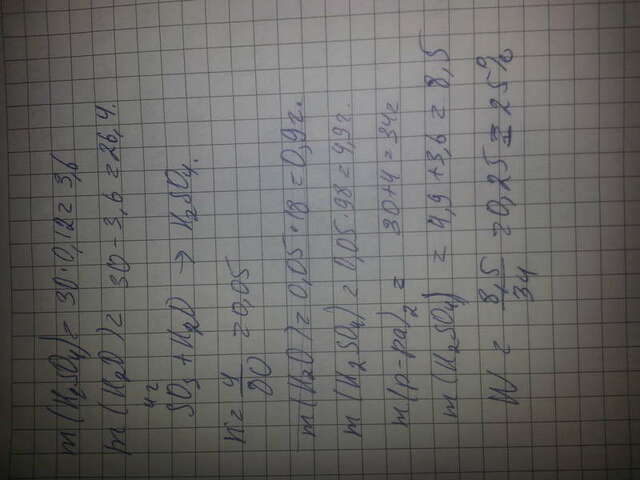 m(H₂SO₄) = 30·0,12 = 3,6
m(H₂O) = 30 - 3,6 = 26,4.
4г
SO₃ + H₂O → H₂SO₄.
n = 4/80 = 0,05
m(H₂O) = 0,05·18 = 0,9г.
m(H₂SO₄) = 0,05·98 = 4,9г.
m(р-ра)₂ = 30+4 = 34г
m(H₂SO₄) = 4,9 + 3,6 = 8,5
W = 8,5/34 = 0,25 = 25%